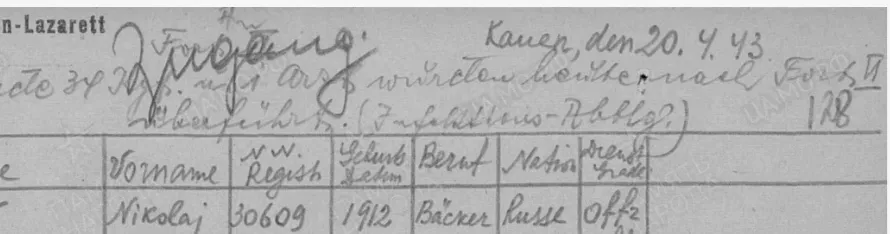 n-Lazarett
Zugang.
Kauen, den 20.4.43
34 u. 1 Arzt wurden heute nach Fort II
überführt. (Infektions-Abtlg.) 128
e Vorname NW. Regist Geburts Datum Beruf Nation Dienst Grade
Nikolaj 30609 1912 Bäcker Russe Offz